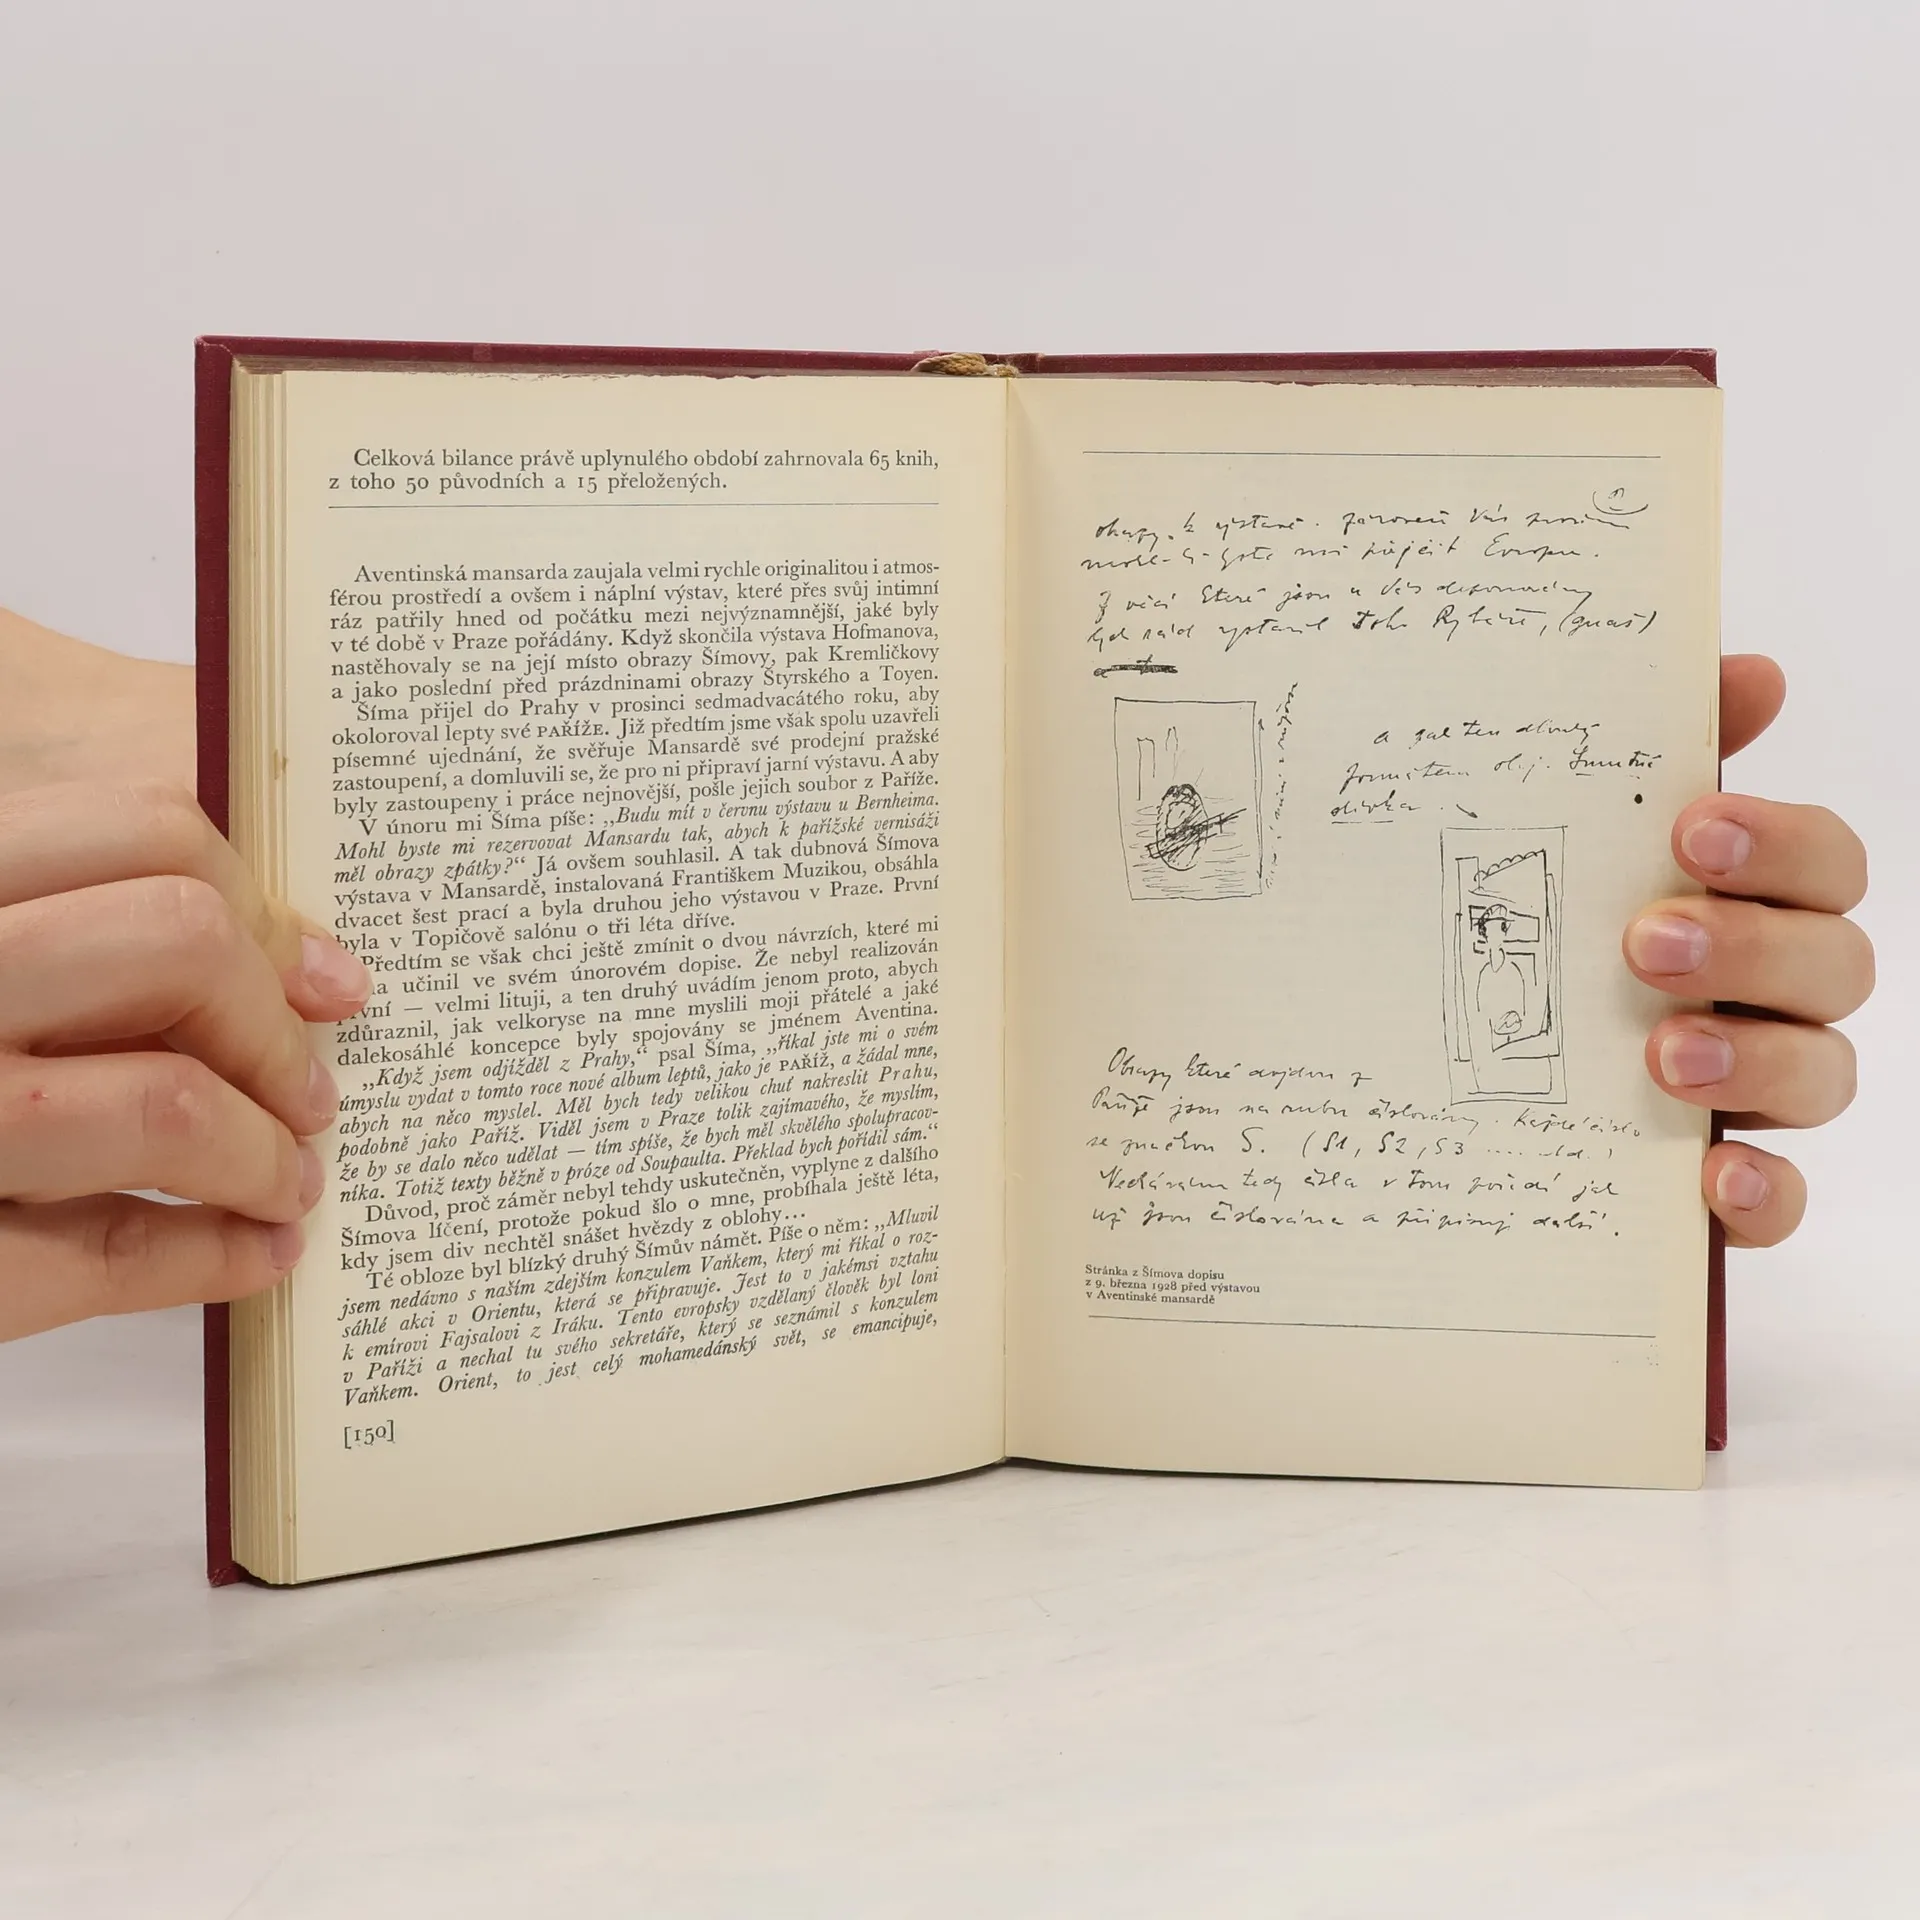 Celková bilance právě uplynulého období zahrnovala 65 knih,
z toho 50 původních a 15 přeložených.
Aventinská mansarda zaujala velmi rychle originalitou i atmos-
férou prostředí a ovšem i náplní výstav, které přes svůj intimní
ráz patřily hned od počátku mezi nejvýznamnější, jaké byly
v té době v Praze pořádány. Když skončila výstava Hofmanova,
nastěhovaly se na její místo obrazy Šímovy, pak Kremličkovy
a jako poslední před prázdninami obrazy Štyrského a Toyen.
Šíma přijel do Prahy v prosinci sedmadvacátého roku, aby
okoloroval lepty své PAŘÍŽE. Již předtím jsme však spolu uzavřeli
písemné ujednání, že svěřuje Mansardě své prodejní pražské
zastoupení, a domluvili se, že pro ni připraví jarní výstavu. A aby
byly zastoupeny i práce nejnovější, pošle jejich soubor z Paříže.
V únoru mi Šíma píše: „Budu mít v červnu výstavu u Bernheima.
Mohl byste mi rezervovat Mansardu tak, abych k pařížské vernisáži
měl obrazy zpátky?“ Já ovšem souhlasil. A tak dubnová Šímova
výstava v Mansardě, instalovaná Františkem Muzikou, obsáhla
dvacet šest prací a byla druhou jeho výstavou v Praze. První
byla v Topičově salónu o tři léta dříve.
Předtím se však chci ještě zmínit o dvou návrzích, které mi
učinil ve svém únorovém dopise. Že nebyl realizován
— velmi lituji, a ten druhý uvádím jenom proto, abych
zdůraznil, jak velkoryse na mne myslili moji přátelé a jaké
dalekosáhlé koncepce byly spojovány se jménem Aventina.
„Když jsem odjížděl z Prahy,“ psal Šíma, „říkal jste mi o svém
úmyslu vydat v tomto roce nové album leptů, jako je PAŘÍŽ, a žádal mne,
abych na něco myslel. Měl bych tedy velikou chuť nakreslit Prahu,
podobně jako Paříž. Viděl jsem v Praze tolik zajímavého, že myslím,
že by se dalo něco udělat — tím spíše, že bych měl skvělého spolupracov-
níka. Totiž texty běžně v próze od Soupaulta. Překlad bych pořídil sám.“
Důvod, proč záměr nebyl tehdy uskutečněn, vyplyne z dalšího
Šímova líčení, protože pokud šlo o mne, probíhala ještě léta,
kdy jsem div nechtěl snášet hvězdy z oblohy...
Té obloze byl blízký druhý Šímův námět. Píše o něm: „Mluvil
jsem nedávno s naším zdejším konzulem Vaňkem, který mi říkal o roz-
sáhlé akci v Orientu, která se připravuje. Jest to v jakémsi vztahu
k emírovi Fajsalovi z Iráku. Tento evropsky vzdělaný člověk byl loni
v Paříži a nechal tu svého sekretáře, který se seznámil s konzulem
Vaňkem. Orient, to jest celý mohamedánský svět, se emancipuje,
[150]
obrazy k výstavě. Zároveň Vás prosím
mohl-li byste mi půjčit Evropu.
Z věcí které jsou u Vás deponovány
rád vystavil toho Rybáře, (guaš)
a pak ten dlouhý
formátem olej. Smutná
dívka.
Obrazy které dojdou z
Paříže jsou na rubu číslovány. Každé číslo
se značkou S. (S1, S2, S3 .... atd.)
Nechávám tedy čísla v tom pořadí jak
už jsou číslována a připisuji další.
Stránka z Šímova dopisu
z 9. března 1928 před výstavou
v Aventinské mansardě